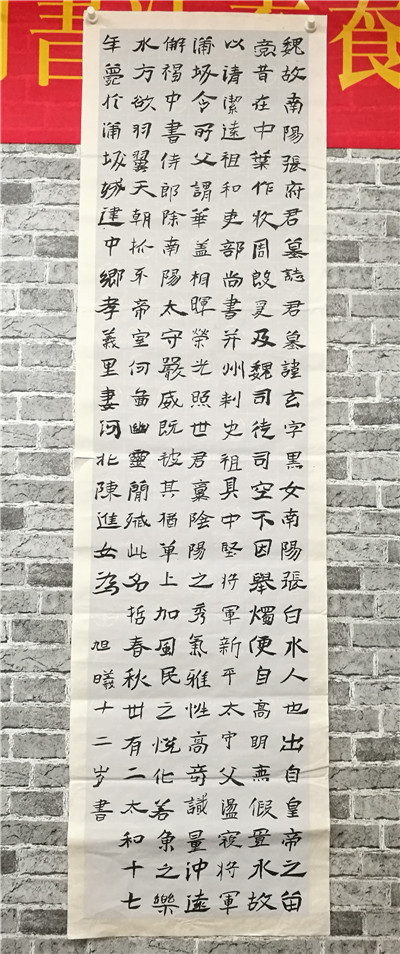 魏故南陽張府君墓誌君墓諱玄字黑女南陽張白水人也出自皇帝之苗
裔昔在中葉作牧周殷爰及魏司徒司空不因舉燭便自高明無假置水故
以清潔遠祖和吏部尚書并州刺史祖具中堅將軍新平太守父盪寇將軍
蒲坂令所父謂華蓋相暉榮光照世君稟陰陽之秀氣雅性高奇識量沖遠
解褐中書侍郎除南陽太守嚴威既被其猶草上加風民之悅化若魚之樂
水方欲羽翼天朝抓牙帝室何啚幽靈簡殲此名哲春秋卅有二太和十七
年薨於蒲坂城建中鄉孝義里妻河北陳進女為
旭曦十二岁書